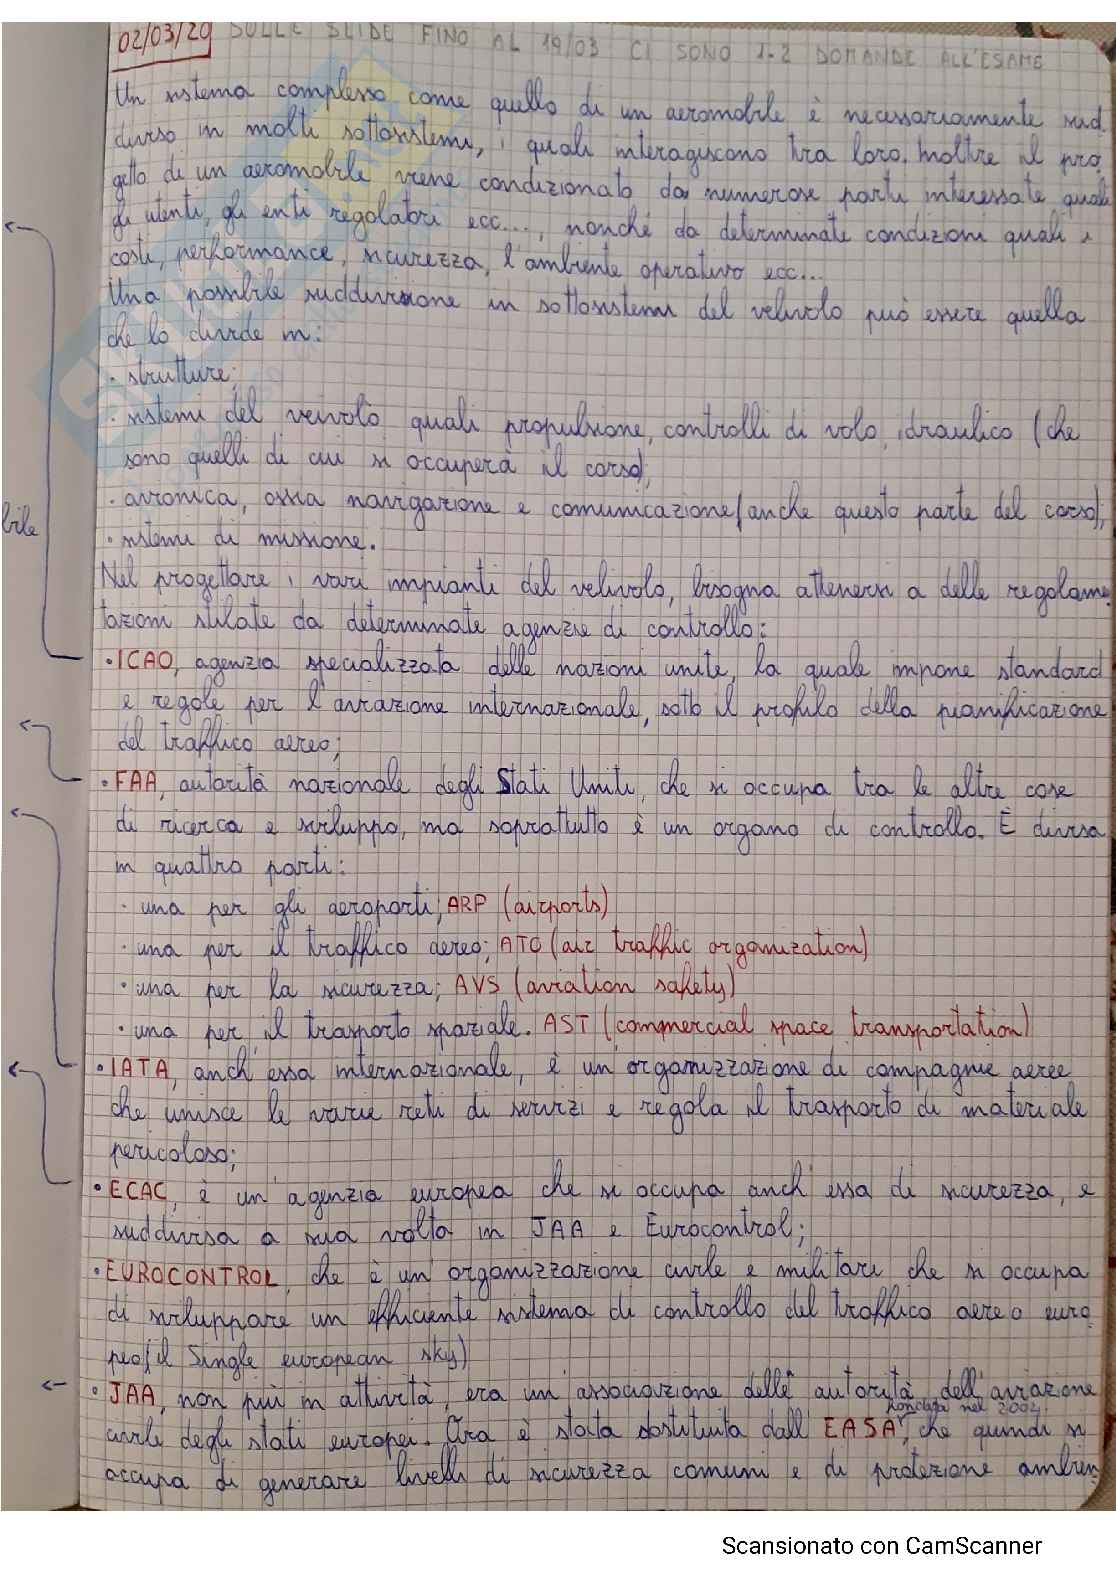 02/03/20 SULLE SLIDE FINO AL 19/03 CI SONO 1-2 DOMANDE ALL'ESAME
Un sistema complesso come quello di un aeromobile è necessariamente sud
diviso in molti sottosistemi, i quali interagiscono tra loro. Inoltre il pro
getto di un aeromobile viene condizionato da numerose parti interessate quali
gli utenti, gli enti regolatori ecc..., nonché da determinate condizioni quali i
costi, performance, sicurezza, l'ambiente operativo ecc...
Una possibile suddivisione in sottosistemi del velivolo può essere quella
che lo divide in:
· strutture;
· sistemi del veivolo quali propulsione, controlli di volo, idraulico (che
sono quelli di cui si occuperà il corso);
· avionica, ossia navigazione e comunicazione (anche questo parte del corso);
bile
· sistemi di missione.
Nel progettare i vari impianti del velivolo, bisogna attenersi a delle regolame
tazioni stilate da determinate agenzie di controllo:
· ICAO, agenzia specializzata delle nazioni unite, la quale impone standard
e regole per l'aviazione internazionale, sotto il profilo della pianificazione
del traffico aereo;
· FAA, autorità nazionale degli Stati Uniti, che si occupa tra le altre cose
di ricerca e sviluppo, ma soprattutto è un organo di controllo. È divisa
in quattro parti:
· una per gli aeroporti; ARP (airports)
· una per il traffico aereo; ATO (air traffic organization)
· una per la sicurezza; AVS (aviation safety)
· una per il trasporto spaziale. AST (commercial space transportation)
· IATA, anch'essa internazionale, è un'organizzazione di compagnie aeree
che unisce le varie reti di servizi e regola il trasporto di materiale
pericoloso;
· ECAC, è un'agenzia europea che si occupa anch'essa di sicurezza, e
suddivisa a sua volta in JAA e Eurocontrol;
· EUROCONTROL, che è un'organizzazione civile e militare che si occupa
di sviluppare un efficiente sistema di controllo del traffico aereo euro
peo (il Single european sky)
· JAA, non più in attività, era un'associazione delle autorità dell'aviazione
civile degli stati europei. Ora è stata sostituita dall'EASA, fondata nel 2002, che quindi si
occupa di generare livelli di sicurezza comuni e di protezione ambien
Scansionato con CamScanner